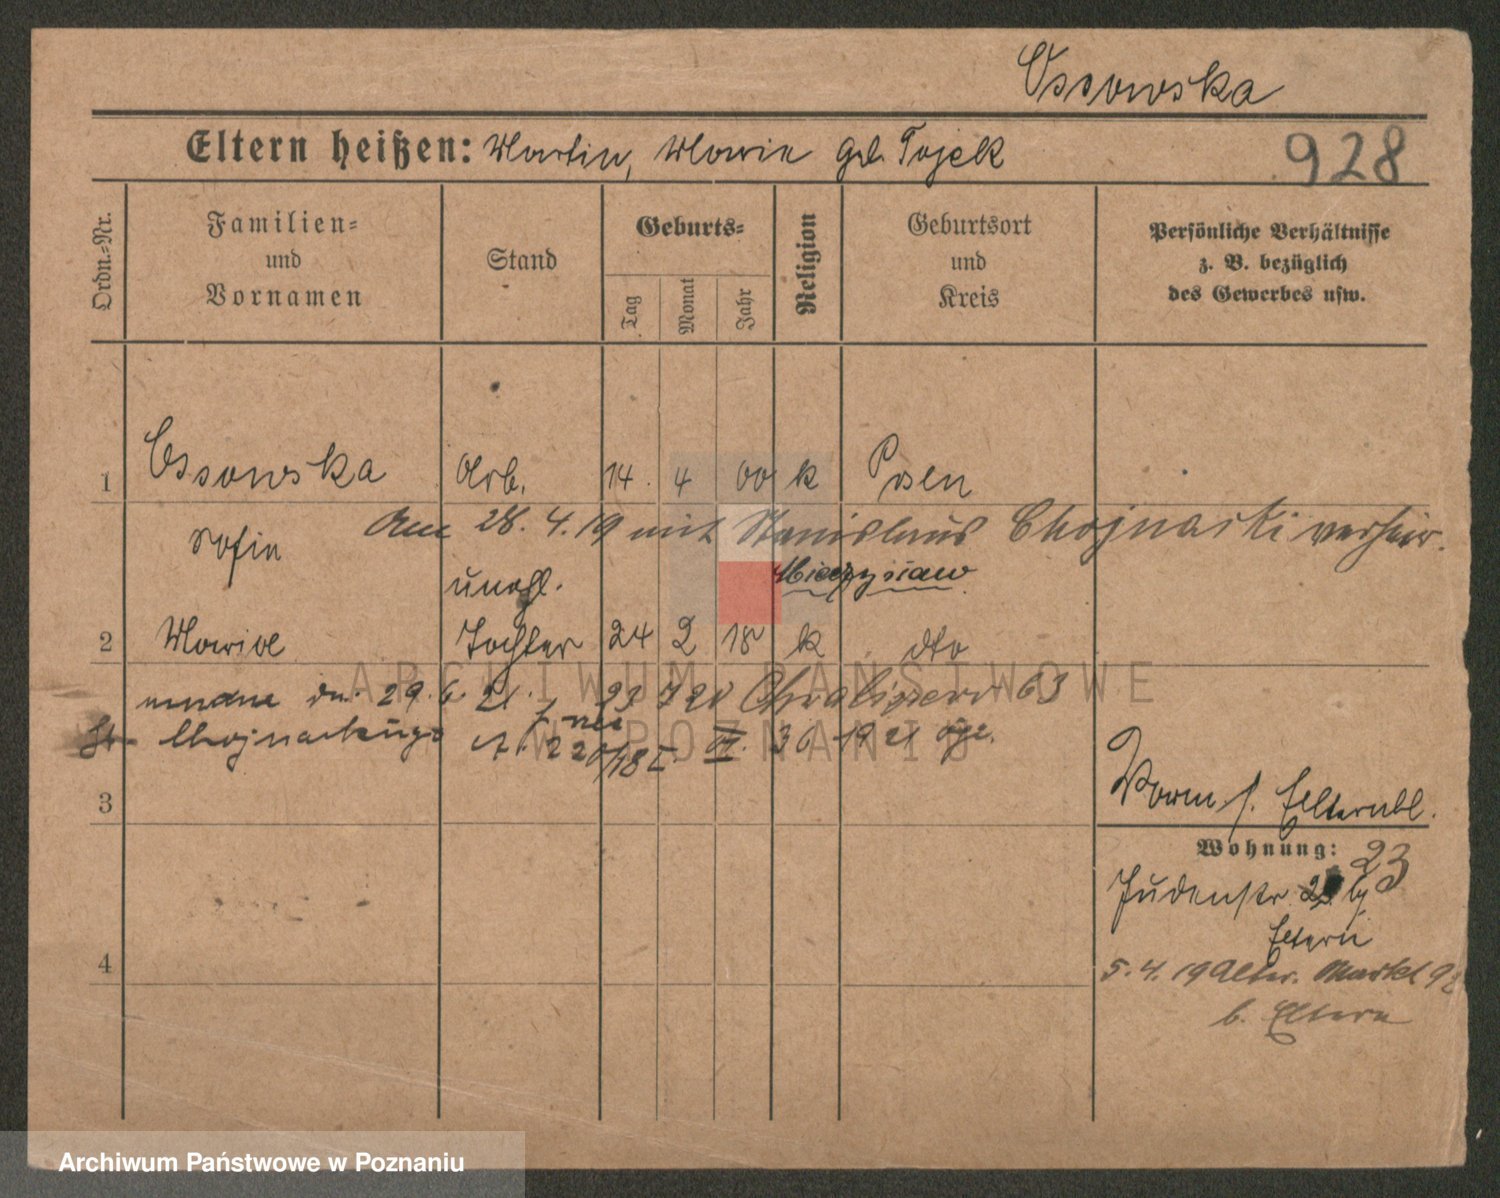 Ossowska
Eltern heißen: Martin, Marie geb. Tojek
928
Ordn.-Nr.
Familien-
und
Vornamen
Stand
Geburts-
Tag
Monat
Jahr
Religion
Geburtsort
und
Kreis
Persönliche Verhältnisse
z. B. bezüglich
des Gewerbes usw.
1 Ossowska Arb. 14. 4 00 k Posen
Sofie
Am 28. 4. 19 mit Stanislaus Chojnacki verheir.
unehl. Mieczysław
2 Tochter 24 2 18 k dto
29. 6. 21. 23 7 20 63
Chojnackiego 1921
3
Vorm s. Elternbl.
Wohnung: 23
Judenstr.
Eltern
4
5. 4. 19 Alter Markt 92
b. Eltern
ARCHIWUM PAŃSTWOWE
W POZNANIU
Archiwum Państwowe w Poznaniu